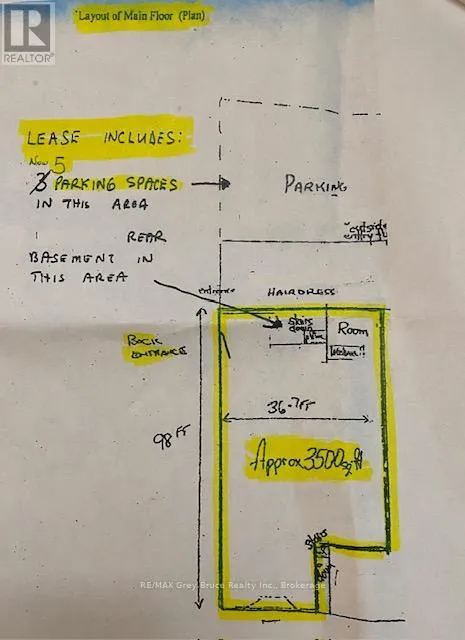 Layout of Main Floor (Plan)
R
REALTOR®
LEASE INCLUDES:
Now 5
3 PARKING SPACES
IN THIS AREA
PARKING
outside
entry
REAR
BASEMENT IN
THIS AREA
entrance
HAIRDRESS
stairs
down
Room
BACK
ENTRANCE
36.7 FT
98 FT
Approx 3500 sq ft
stairs
RE/MAX Grey Bruce Realty Inc., Brokerage